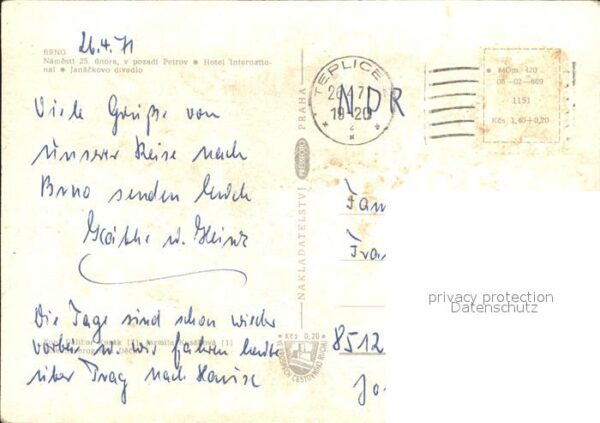 26.4.71
BRNO
Náměstí 25. února, v pozadí Petrov • Hotel Internatio-
nal • Janáčkovo divadlo
Viele Grüße von
unserer Reise nach
Brno senden Euch
Käthe u. Heinz
Die Tage sind schon wieder
vorbei u. wir fahren heute
über Prag nach Hause
NAKLADATELSTVÍ PRESSFOTO PRAHA
Kčs 0,20
TEPLICE
19-20
NDR
MOm 420
05-02-869
1151
Kčs 1,40+0,20
Fam
Fra
8512
Jo
privacy protection
Datenschutz